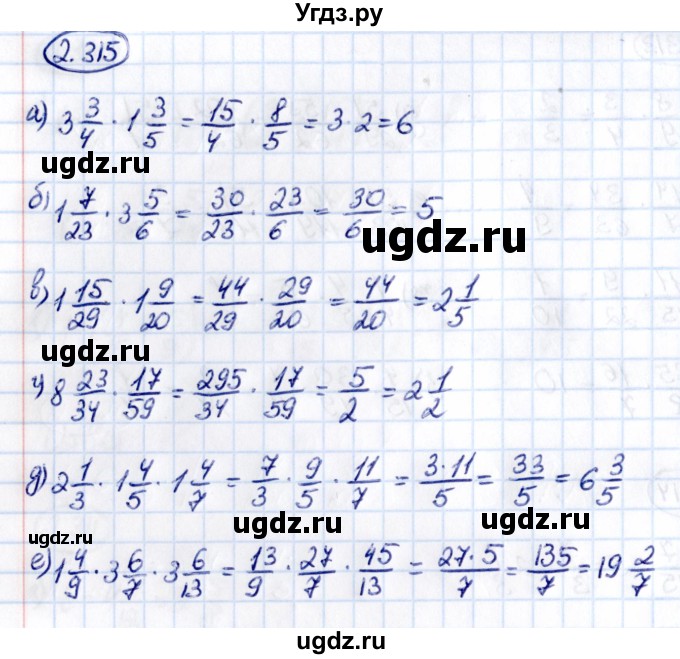 Угдз.ру
2.315
а) 3 3/4 · 1 3/5 = 15/4 · 8/5 = 3·2 = 6
ugdz.ru
б) 1 7/23 · 3 5/6 = 30/23 · 23/6 = 30/6 = 5
ugdz.ru
в) 1 15/29 · 1 9/20 = 44/29 · 29/20 = 44/20 = 2 1/5
ugdz.ru
г) 8 23/34 · 17/59 = 295/34 · 17/59 = 5/2 = 2 1/2
ugdz.ru
д) 2 1/3 · 1 4/5 · 1 4/7 = 7/3 · 9/5 · 11/7 = 3·11/5 = 33/5 = 6 3/5
ugdz.ru ugdz.ru ugdz.ru
е) 1 4/9 · 3 6/7 · 3 6/13 = 13/9 · 27/7 · 45/13 = 27·5/7 = 135/7 = 19 2/7
ugdz.ru